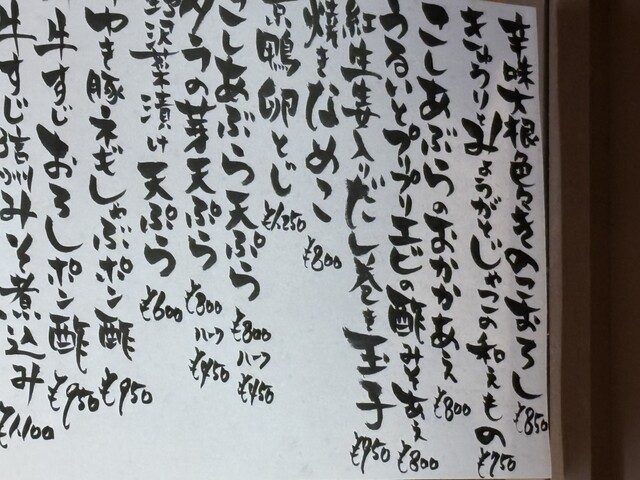 辛味大根色々きのこおろし ¥850
きゅうりとみょうがとじゃこの和えもの ¥750
こしあぶらのおかかあえ ¥800
うるいとプリプリエビの酢みそあえ ¥800
紅生姜入りだし巻き玉子 ¥750
焼きなめこ ¥800
鴨卵とじ ¥1,250
こしあぶら天ぷら ¥800 ハーフ ¥450
らの芽天ぷら ¥800 ハーフ ¥450
沢菜漬け天ぷら ¥600
ゆき豚ネギしゃぶポン酢 ¥950
牛すじおろしポン酢 ¥950
牛すじ信州みそ煮込み ¥1,100